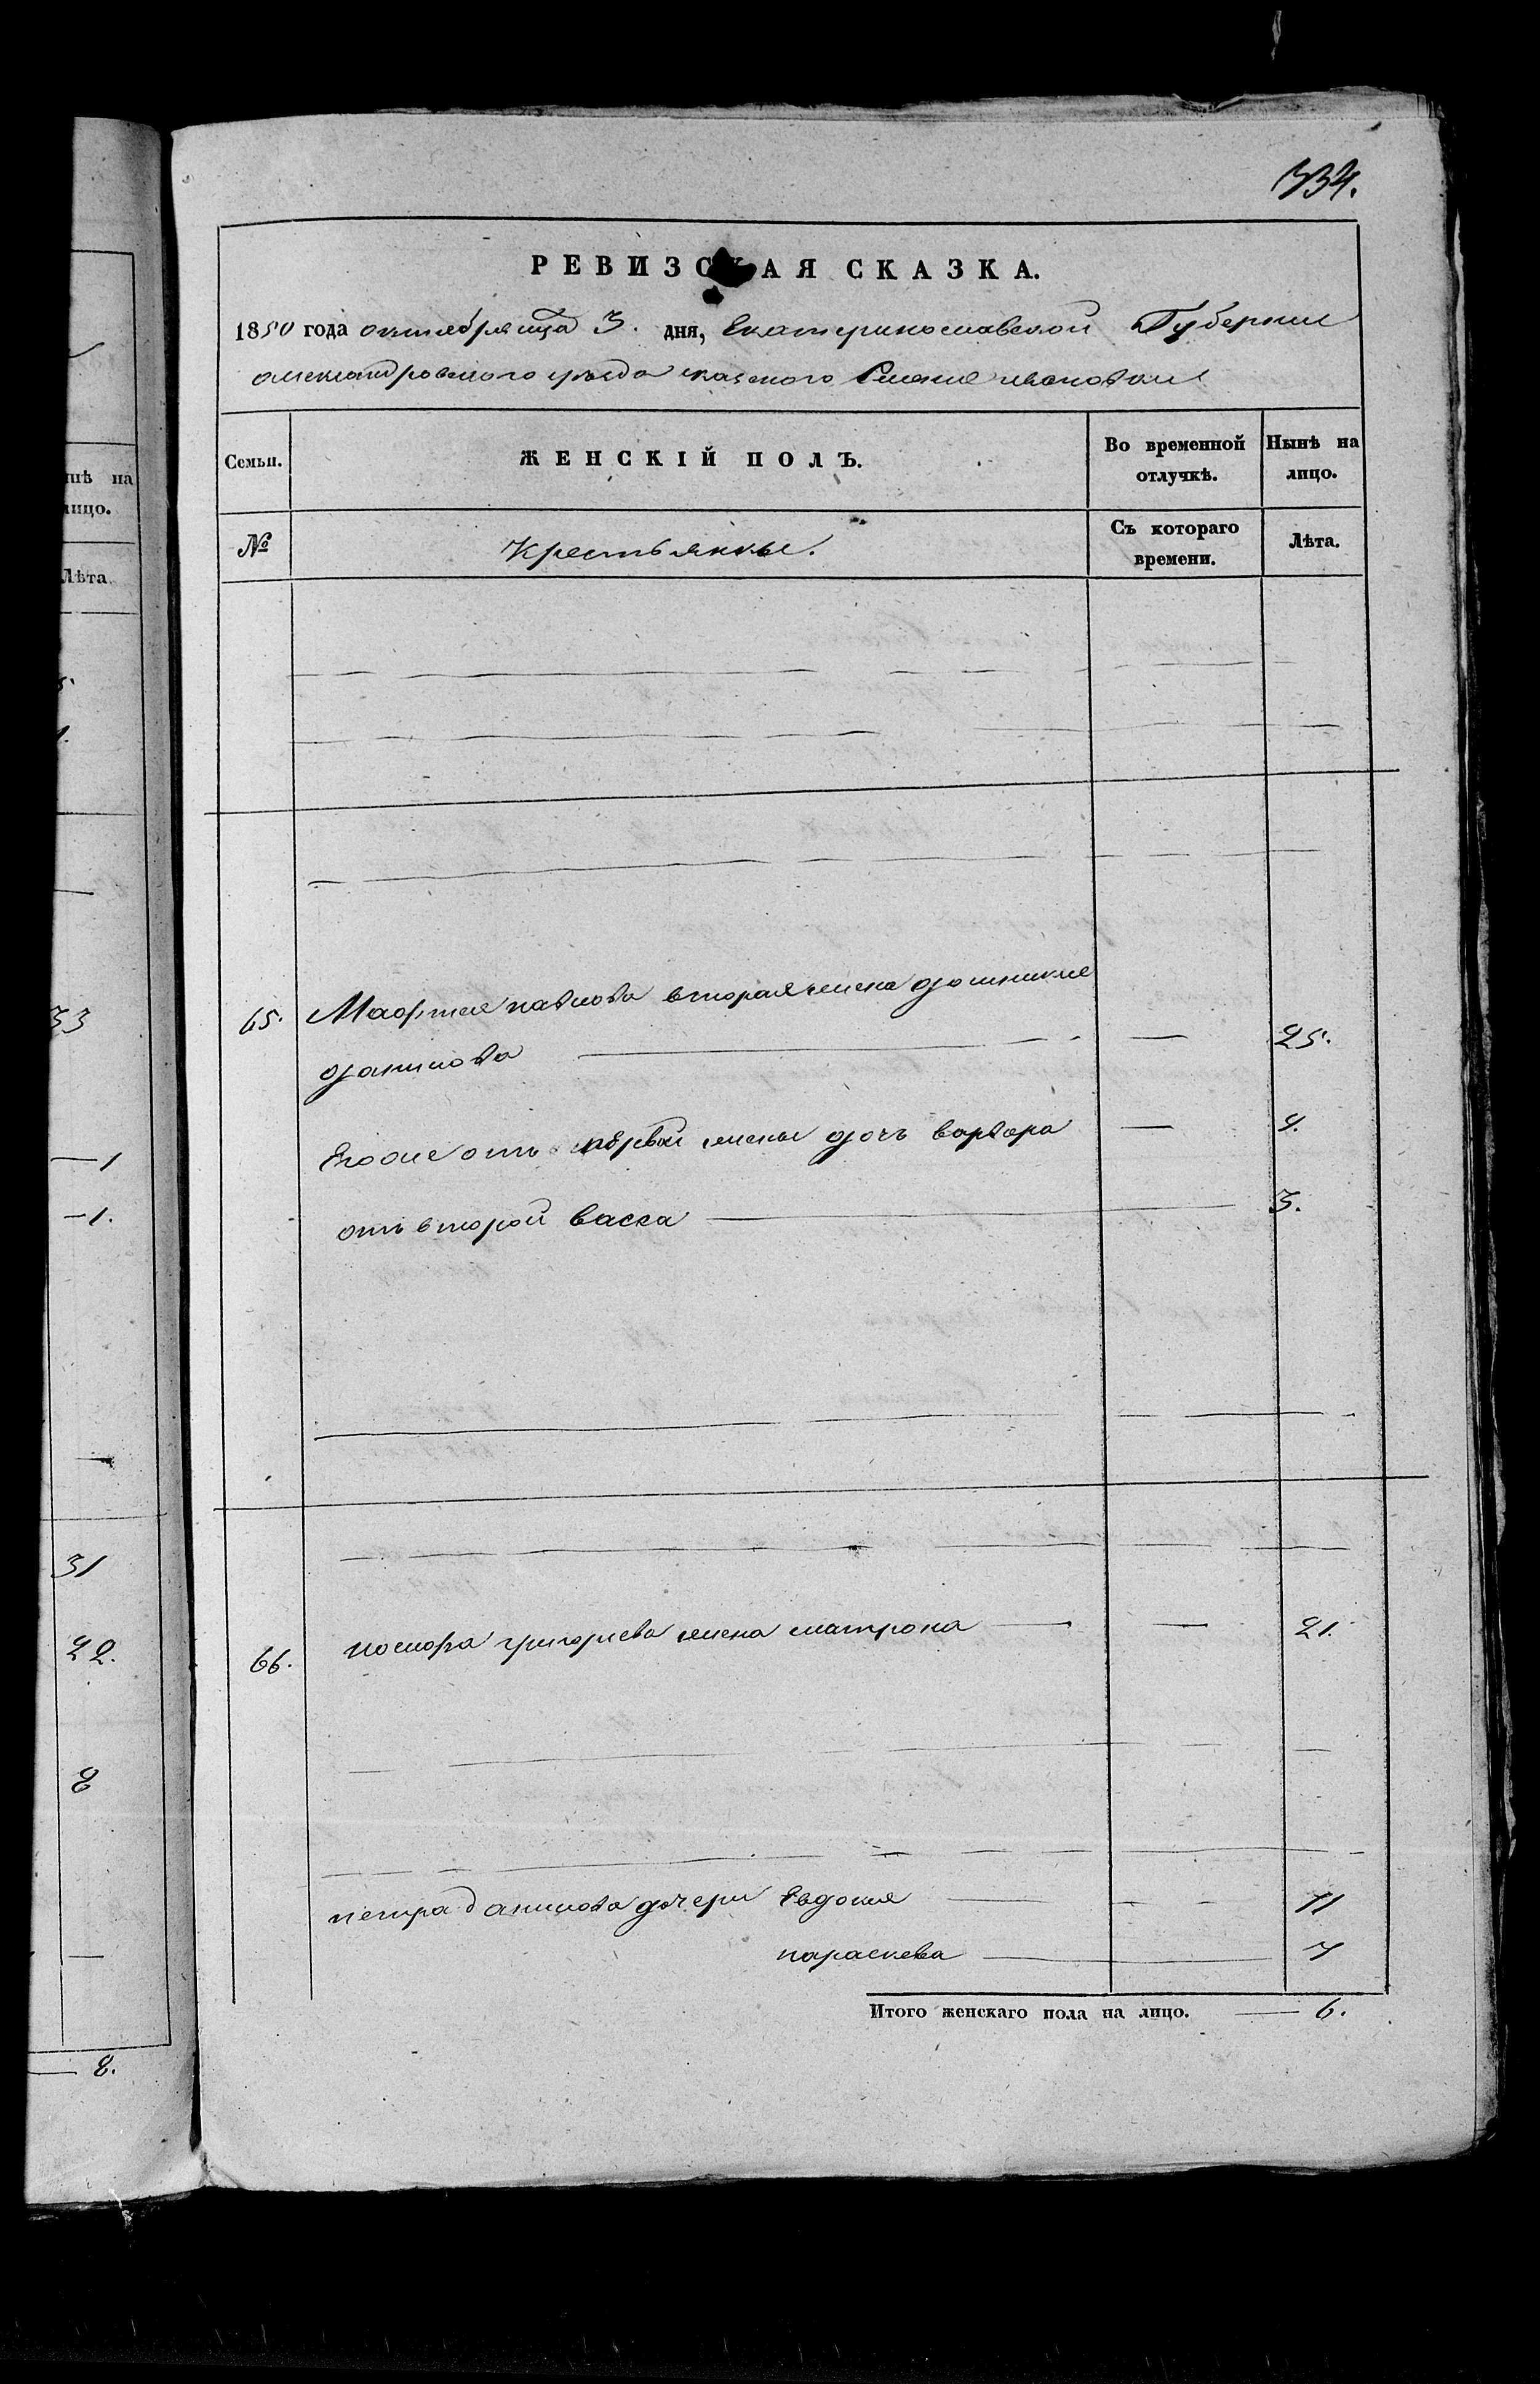 334.
РЕВИЗСКАЯ СКАЗКА.
1850 года октебря мца 3. дня, Екатеринославской Губернии
александровского уезда казеного Селения ивановки
Семьи. ЖЕНСКІЙ ПОЛЪ. Во временной отлучкѣ. Нынѣ на лицо.
№ Крестьянкы. Съ котораго времени. Лѣта.
65. павлова вторая жена
данилова — 25.
Егоже отъ первой жены дочъ варвара — 4.
отъ второй васса — 3.
66. григориева жена матрона — — 21.
петра данилова дочери Евдокия — — 11
параскева — 7
Итого женскаго пола на лицо. — 6.
нѣ на
лицо.
Лѣта
33
— 1
— 1.
31
22.
8
— 8.